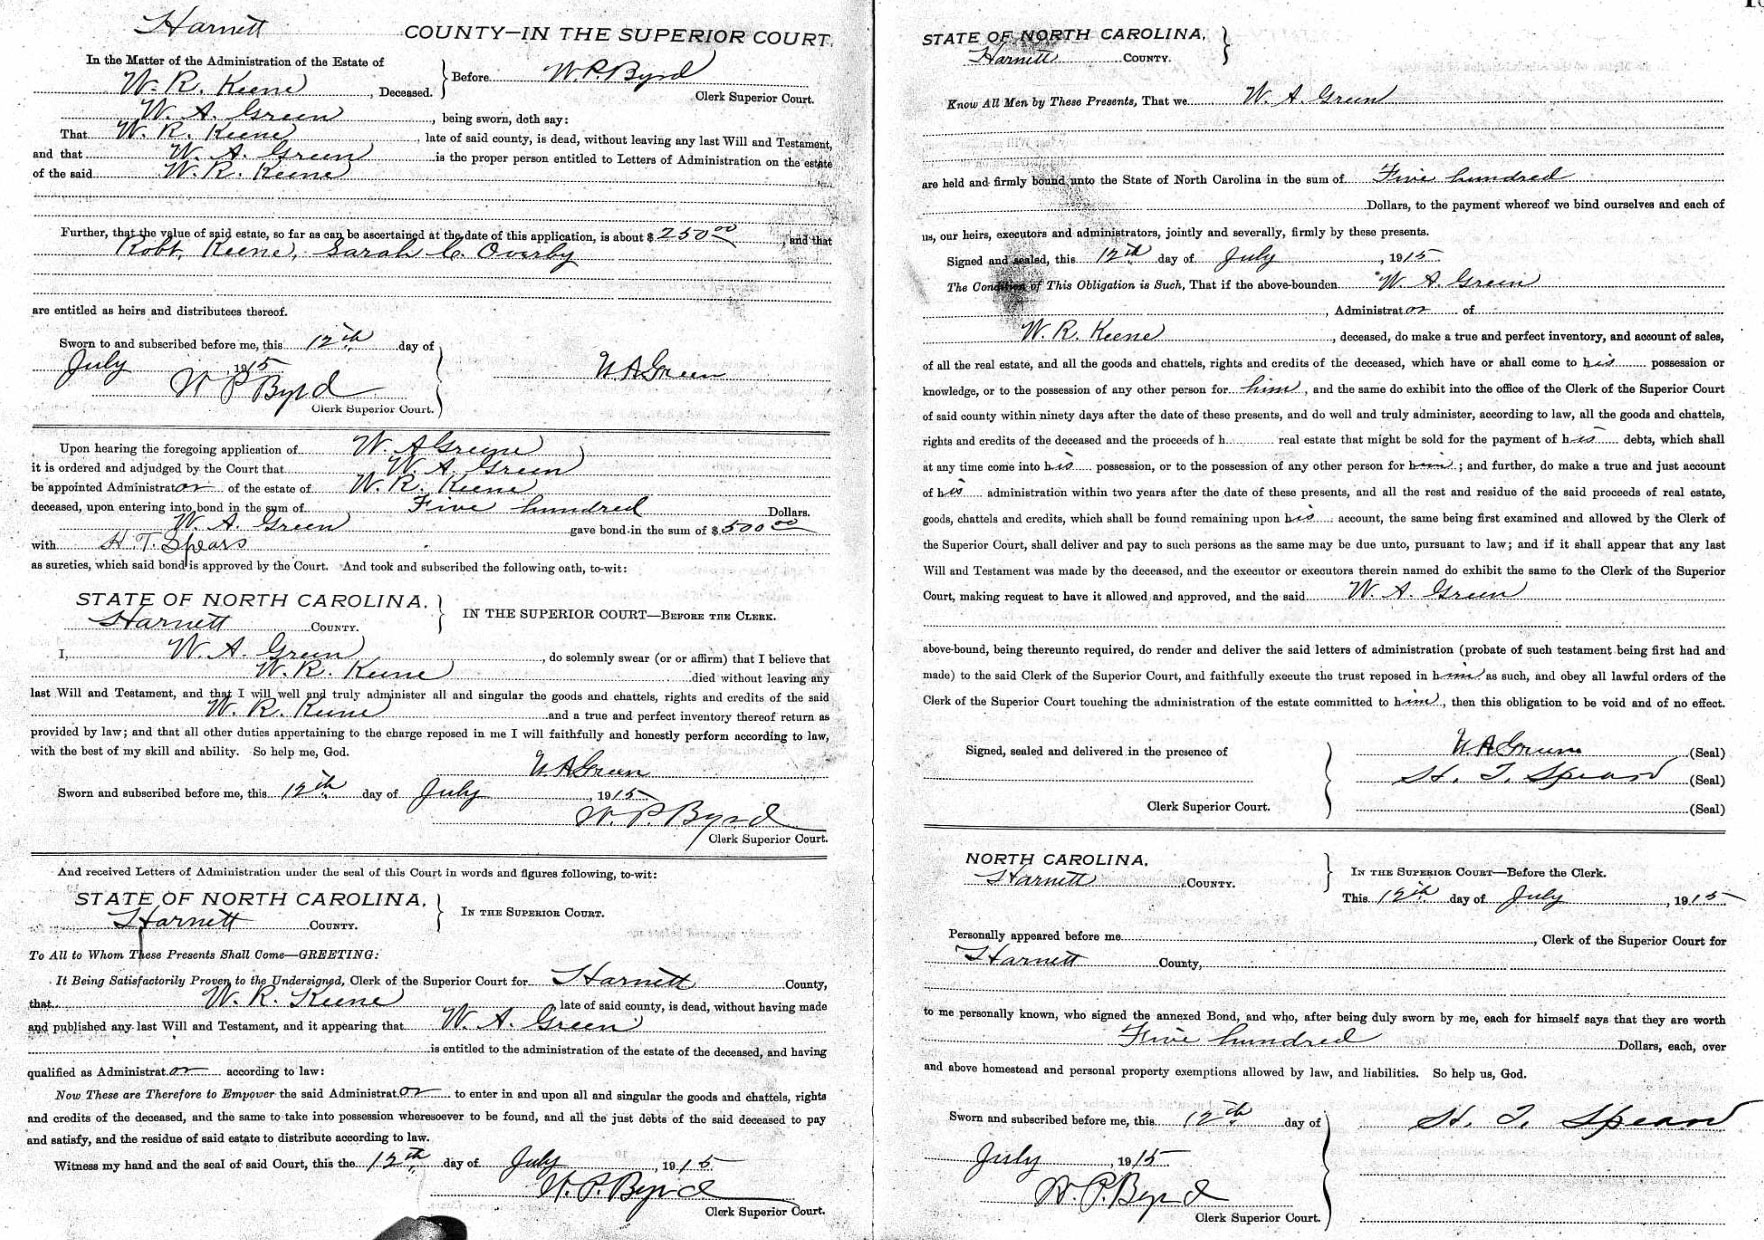 Harnett COUNTY—IN THE SUPERIOR COURT.
In the Matter of the Administration of the Estate of
W. R. Keene, Deceased.
Before W. P. Byrd
Clerk Superior Court.
W. A. Green, being sworn, doth say:
That W. R. Keene, late of said county, is dead, without leaving any last Will and Testament,
and that W. A. Green is the proper person entitled to Letters of Administration on the estate
of the said W. R. Keene
Further, that the value of said estate, so far as can be ascertained at the date of this application, is about $250.00, and that
Robt. Keene, Sarah C. Overby
are entitled as heirs and distributees thereof.
Sworn to and subscribed before me, this 12th day of
July 1915
W P Byrd
Clerk Superior Court.
W A Green
Upon hearing the foregoing application of W. A Green
it is ordered and adjudged by the Court that W. A. Green
be appointed Administrator of the estate of W. R. Keene
deceased, upon entering into bond in the sum of Five hundred Dollars.
W. A. Green gave bond in the sum of $500.00
with H. T. Spears
as sureties, which said bond is approved by the Court. And took and subscribed the following oath, to-wit:
STATE OF NORTH CAROLINA.
Harnett COUNTY.
IN THE SUPERIOR COURT—BEFORE THE CLERK.
I, W. A. Green, do solemnly swear (or or affirm) that I believe that
W. R. Keene died without leaving any
last Will and Testament, and that I will well and truly administer all and singular the goods and chattels, rights and credits of the said
W. R. Keene and a true and perfect inventory thereof return as
provided by law; and that all other duties appertaining to the charge reposed in me I will faithfully and honestly perform according to law,
with the best of my skill and ability. So help me, God.
W A Green
Sworn and subscribed before me, this 12th day of July, 1915
W. P. Byrd
Clerk Superior Court.
And received Letters of Administration under the seal of this Court in words and figures following, to-wit:
STATE OF NORTH CAROLINA,
Harnett COUNTY.
IN THE SUPERIOR COURT.
To All to Whom These Presents Shall Come—GREETING:
It Being Satisfactorily Proven to the Undersigned, Clerk of the Superior Court for Harnett County,
that W. R. Keene late of said county, is dead, without having made
and published any last Will and Testament, and it appearing that W. A. Green
is entitled to the administration of the estate of the deceased, and having
qualified as Administrator according to law:
Now These are Therefore to Empower the said Administrator to enter in and upon all and singular the goods and chattels, rights
and credits of the deceased, and the same to take into possession wheresoever to be found, and all the just debts of the said deceased to pay
and satisfy, and the residue of said estate to distribute according to law.
Witness my hand and the seal of said Court, this the 12th day of July, 1915
W. P. Byrd
Clerk Superior Court.
STATE OF NORTH CAROLINA,
Harnett COUNTY.
Know All Men by These Presents, That we W. A. Green
are held and firmly bound unto the State of North Carolina in the sum of Five hundred
Dollars, to the payment whereof we bind ourselves and each of
us, our heirs, executors and administrators, jointly and severally, firmly by these presents.
Signed and sealed, this 12th day of July, 1915
The Condition of This Obligation is Such, That if the above-bounden W. A. Green
, Administrator of
W. R. Keene, deceased, do make a true and perfect inventory, and account of sales,
of all the real estate, and all the goods and chattels, rights and credits of the deceased, which have or shall come to his possession or
knowledge, or to the possession of any other person for him, and the same do exhibit into the office of the Clerk of the Superior Court
of said county within ninety days after the date of these presents, and do well and truly administer, according to law, all the goods and chattels,
rights and credits of the deceased and the proceeds of h real estate that might be sold for the payment of his debts, which shall
at any time come into his possession, or to the possession of any other person for him; and further, do make a true and just account
of his administration within two years after the date of these presents, and all the rest and residue of the said proceeds of real estate,
goods, chattels and credits, which shall be found remaining upon his account, the same being first examined and allowed by the Clerk of
the Superior Court, shall deliver and pay to such persons as the same may be due unto, pursuant to law; and if it shall appear that any last
Will and Testament was made by the deceased, and the executor or executors therein named do exhibit the same to the Clerk of the Superior
Court, making request to have it allowed and approved, and the said W. A. Green
above-bound, being thereunto required, do render and deliver the said letters of administration (probate of such testament being first had and
made) to the said Clerk of the Superior Court, and faithfully execute the trust reposed in him as such, and obey all lawful orders of the
Clerk of the Superior Court touching the administration of the estate committed to him, then this obligation to be void and of no effect.
Signed, sealed and delivered in the presence of
Clerk Superior Court.
W A Green (Seal)
H. T. Spears (Seal)
(Seal)
NORTH CAROLINA,
Harnett COUNTY.
IN THE SUPERIOR COURT—Before the Clerk.
This 12th day of July, 1915
Personally appeared before me, Clerk of the Superior Court for
Harnett County,
to me personally known, who signed the annexed Bond, and who, after being duly sworn by me, each for himself says that they are worth
Five hundred Dollars, each, over
and above homestead and personal property exemptions allowed by law, and liabilities. So help us, God.
Sworn and subscribed before me, this 12th day of
July, 1915
W. P. Byrd
Clerk Superior Court.
H. T. Spears